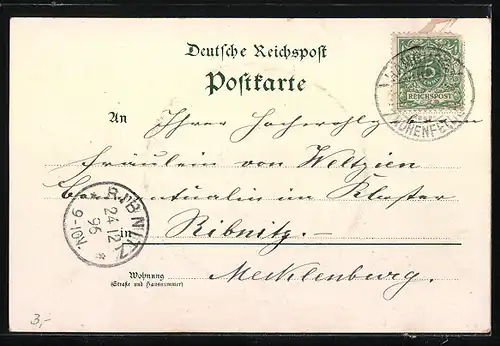 Deutsche Reichspost
Postkarte
5
REICHSPOST
HOHENFELDE
An Ihrer Hochwohlgeboren
Fräulein von Weltzien
Conventualin im Kloster
in Ribnitz.-
Mecklenburg.
RIBNITZ
24 12
95
9-10 V.
*
Wohnung
(Straße und Hausnummer)
3,-